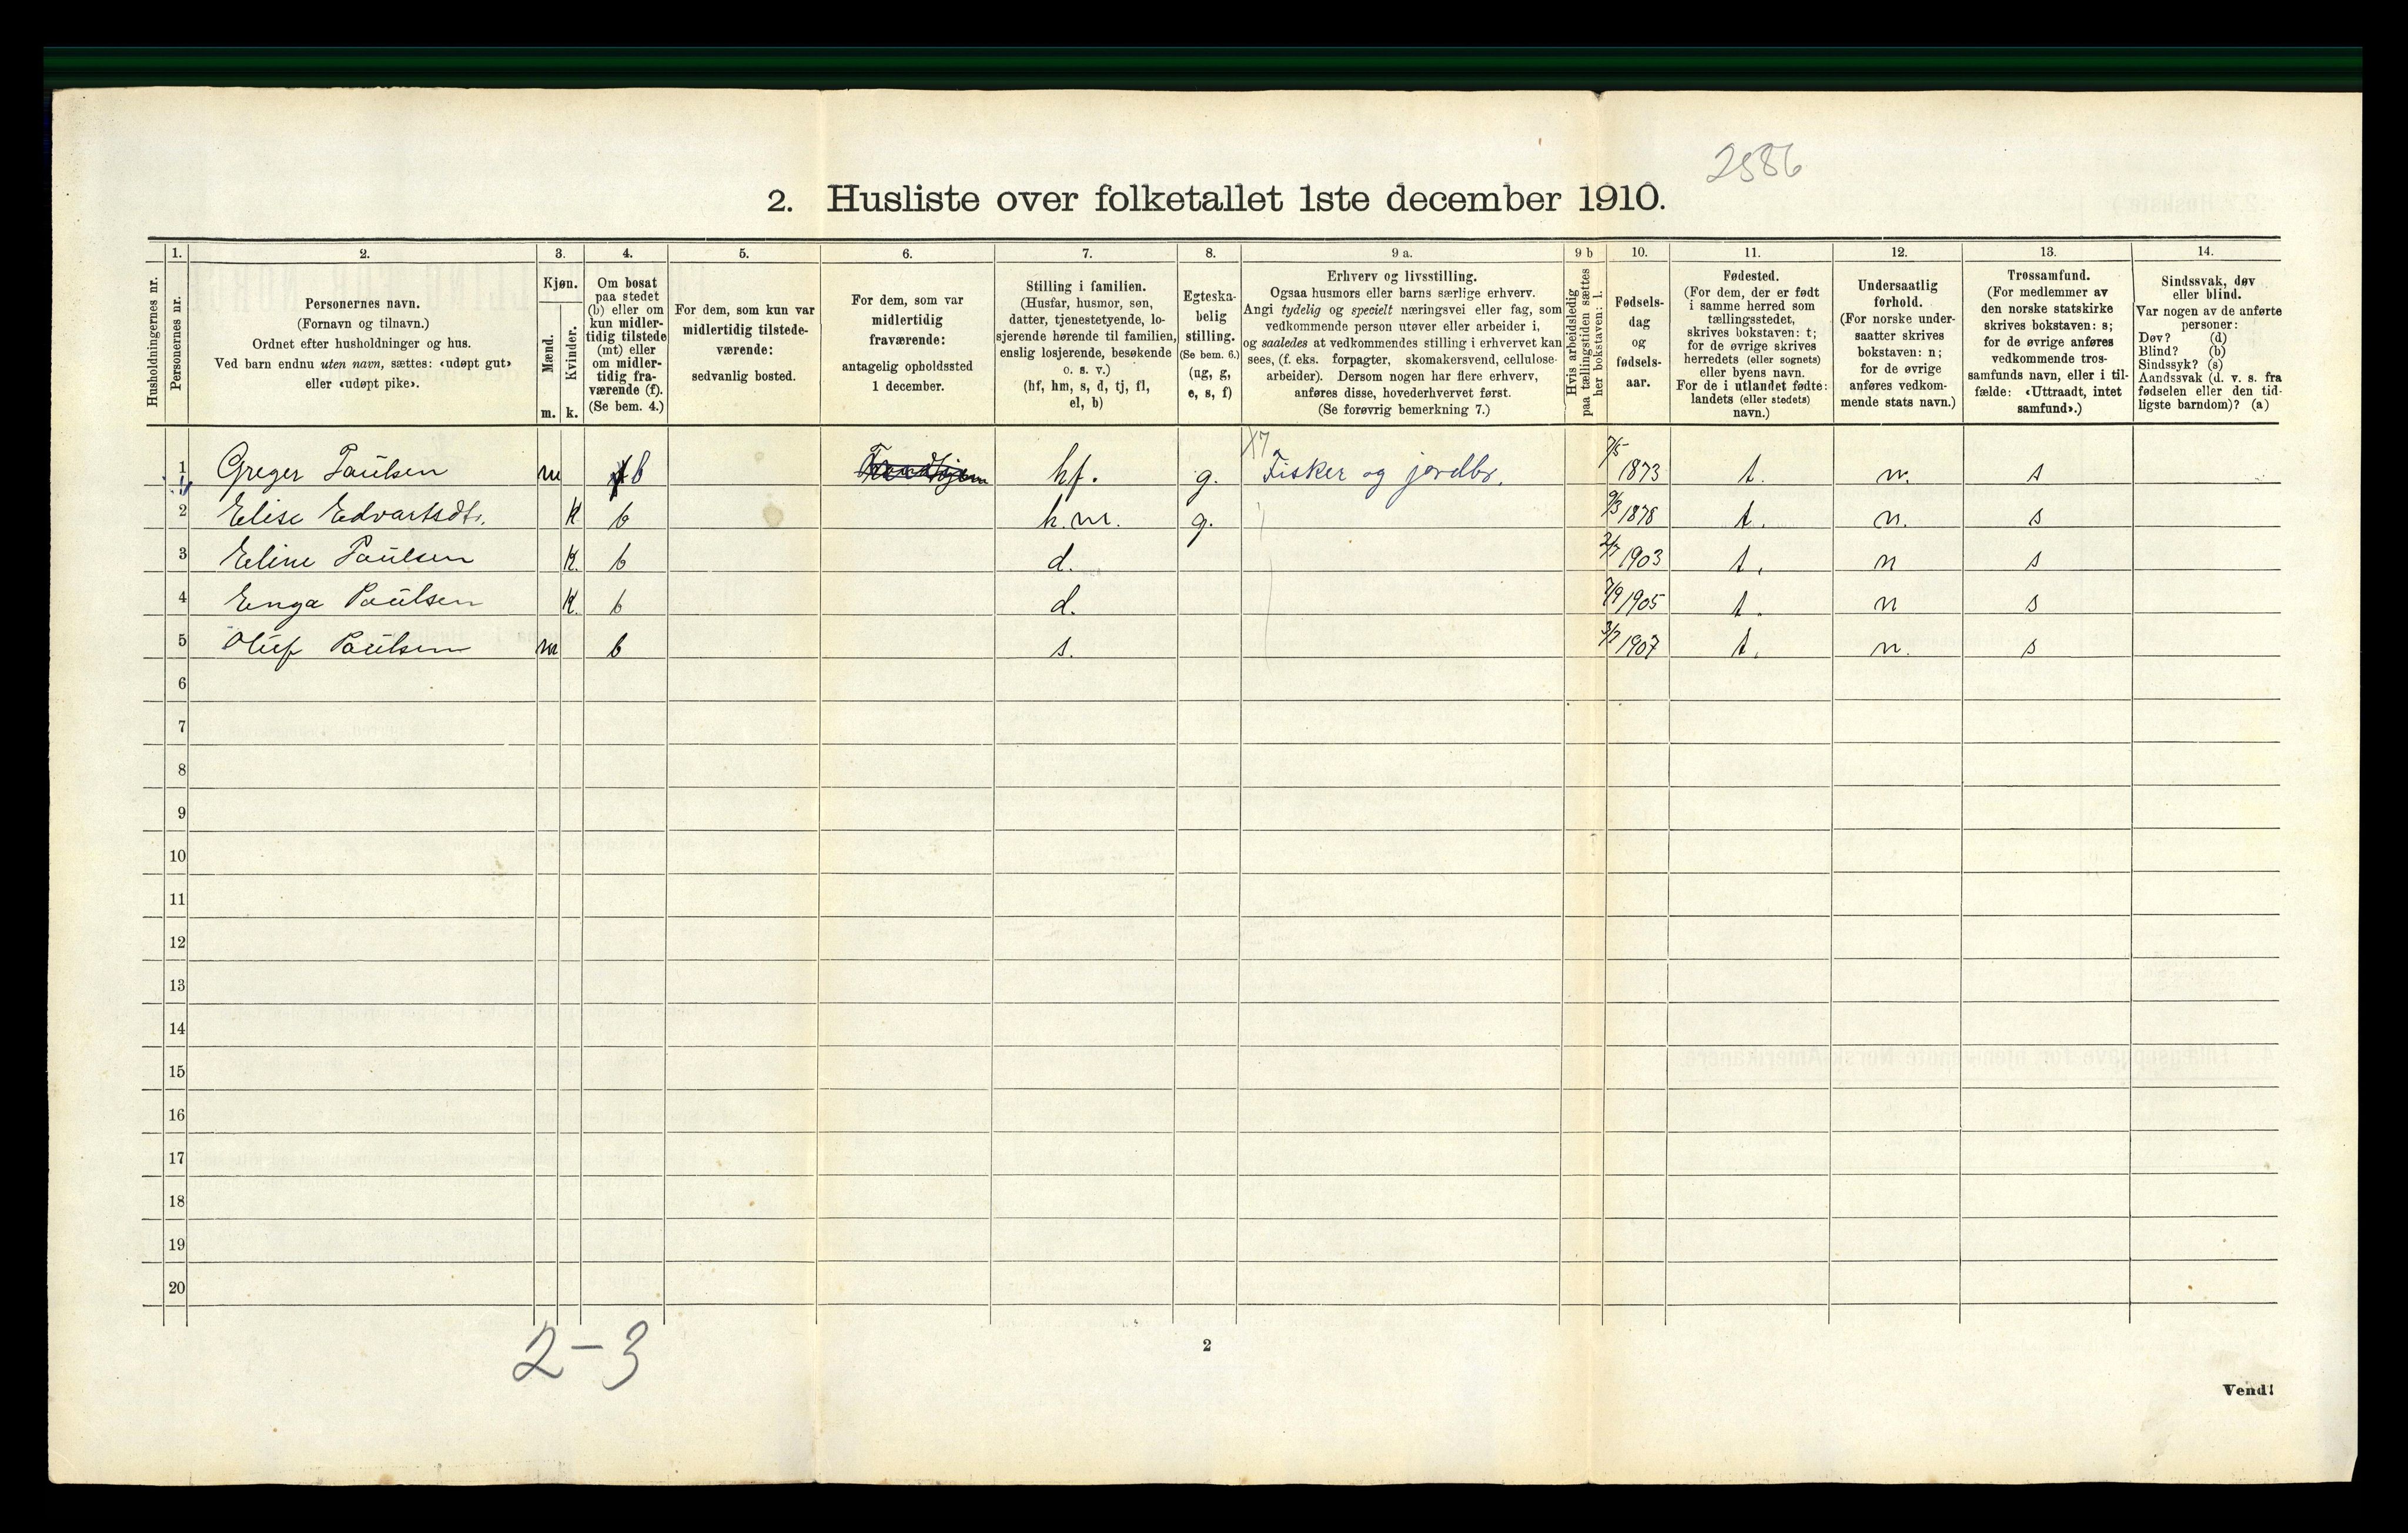 2886
2. Husliste over folketallet 1ste december 1910.
Husholdningernes nr.
1.
Personernes nr.
2.
Personernes navn.
(Fornavn og tilnavn.)
Ordnet efter husholdninger og hus.
Ved barn endnu uten navn, sættes: «udøpt gut»
eller «udøpt pike».
3.
Kjøn.
Mænd.
m.
Kvinder.
k.
4.
Om bosat
paa stedet
(b) eller om
kun midler-
tidig tilstede
(mt) eller
om midler-
tidig fra-
værende (f).
(Se bem. 4.)
5.
For dem, som kun var
midlertidig tilstede-
værende:
sedvanlig bosted.
6.
For dem, som var
midlertidig
fraværende:
antagelig opholdssted
1 december.
7.
Stilling i familien.
(Husfar, husmor, søn,
datter, tjenestetyende, lo-
sjerende hørende til familien,
enslig losjerende, besøkende
o. s. v.)
(hf, hm, s, d, tj, fl,
el, b)
8.
Egteska-
belig
stilling.
(Se bem. 6.)
(ug, g,
e, s, f)
9 a.
Erhverv og livsstilling.
Ogsaa husmors eller barns særlige erhverv.
Angi tydelig og specielt næringsvei eller fag, som
vedkommende person utøver eller arbeider i,
og saaledes at vedkommendes stilling i erhvervet kan
sees, (f. eks. forpagter, skomakersvend, cellulose-
arbeider). Dersom nogen har flere erhverv,
anføres disse, hovederhvervet først.
(Se forøvrig bemerkning 7.)
9 b
Hvis arbeidsledig
paa tællingstiden sættes
her bokstaven: l.
10.
Fødsels-
dag
og
fødsels-
aar.
11.
Fødested.
(For dem, der er født
i samme herred som
tællingsstedet,
skrives bokstaven: t;
for de øvrige skrives
herredets (eller sognets)
eller byens navn.
For de i utlandet fødte:
landets (eller stedets)
navn.)
12.
Undersaatlig
forhold.
(For norske under-
saatter skrives
bokstaven: n;
for de øvrige
anføres vedkom-
mende stats navn.)
13.
Trossamfund.
(For medlemmer av
den norske statskirke
skrives bokstaven: s;
for de øvrige anføres
vedkommende tros-
samfunds navn, eller i til-
fælde: «Uttraadt, intet
samfund».)
14.
Sindssvak, døv
eller blind.
Var nogen av de anførte
personer:
Døv? (d)
Blind? (b)
Sindssyk? (s)
Aandssvak (d. v. s. fra
fødselen eller den tid-
ligste barndom)? (a)
1 Greger Paulsen m b hf. g. X7 Fisker og jordbr. 7/5 1873 t. n. s
2 Elise Edvartsdt. K b h.m. g. 9/3 1878 t. n. s
3 Eline Paulsen K. b d. 2/7 1903 t. n s
4 Enga Paulsen K. b d. 7/9 1905 t. n s
5 Oluf Paulsen m b s. 3/7 1907 t. n. s
6
7
8
9
10
11
12
13
14
15
16
17
18
19
20
2-3
2
Vend!